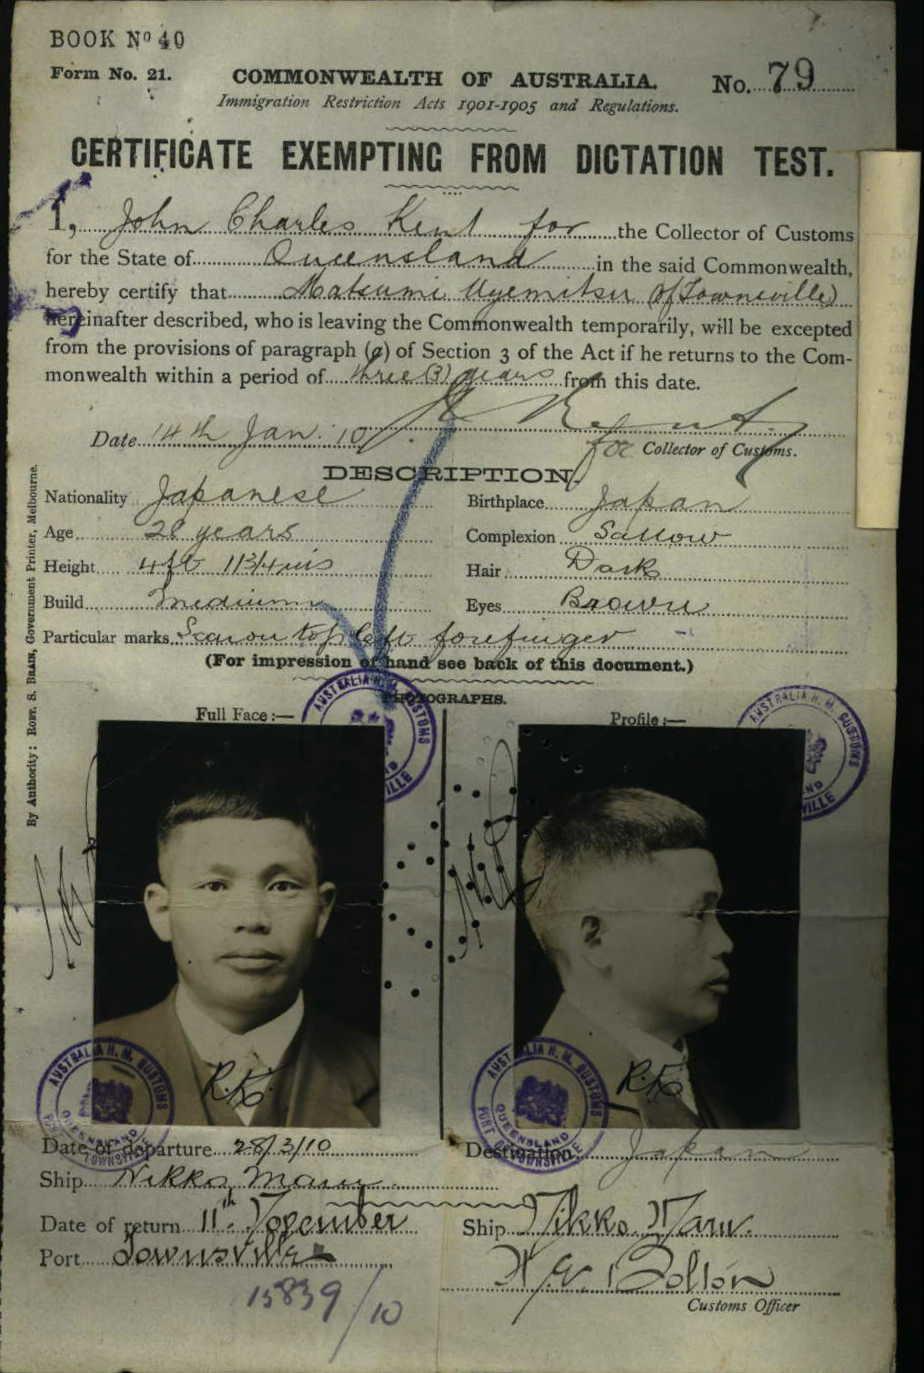 BOOK Nº 40
Form No. 21.
COMMONWEALTH OF AUSTRALIA.
No. 79
Immigration Restriction Acts 1901-1905 and Regulations.
CERTIFICATE EXEMPTING FROM DICTATION TEST.
I, John Charles Kent for the Collector of Customs
for the State of Queensland in the said Commonwealth,
hereby certify that Matsumi Uyemitsu (of Townsville)
hereinafter described, who is leaving the Commonwealth temporarily, will be excepted
from the provisions of paragraph (a) of Section 3 of the Act if he returns to the Com-
monwealth within a period of three (3) years from this date.
Date 14th Jan. 10
for Collector of Customs.
DESCRIPTION
Nationality Japanese
Birthplace Japan
Age 28 years
Complexion Sallow
Height 4ft 11 3/4 ins
Hair Dark
Build Medium
Eyes Brown
Particular marks Scar on top left forefinger
(For impression of hand see back of this document.)
PHOTOGRAPHS.
Full Face :—
Profile :—
By Authority: ROBT. S. BRAIN, Government Printer, Melbourne.
AUSTRALIA H. M. CUSTOMS
AUSTRALIA H. M. CUSTOMS
R.K.
R.K.
AUSTRALIA H. M. CUSTOMS
QUEENSLAND
TOWNSVILLE
AUSTRALIA H. M. CUSTOMS
QUEENSLAND
PORT OF TOWNSVILLE
Date of departure 28/3/10
Destination Japan
Ship Nikko Maru
Date of return 11th November
Ship Nikko Maru.
Port Townsville
15839/10
Customs Officer